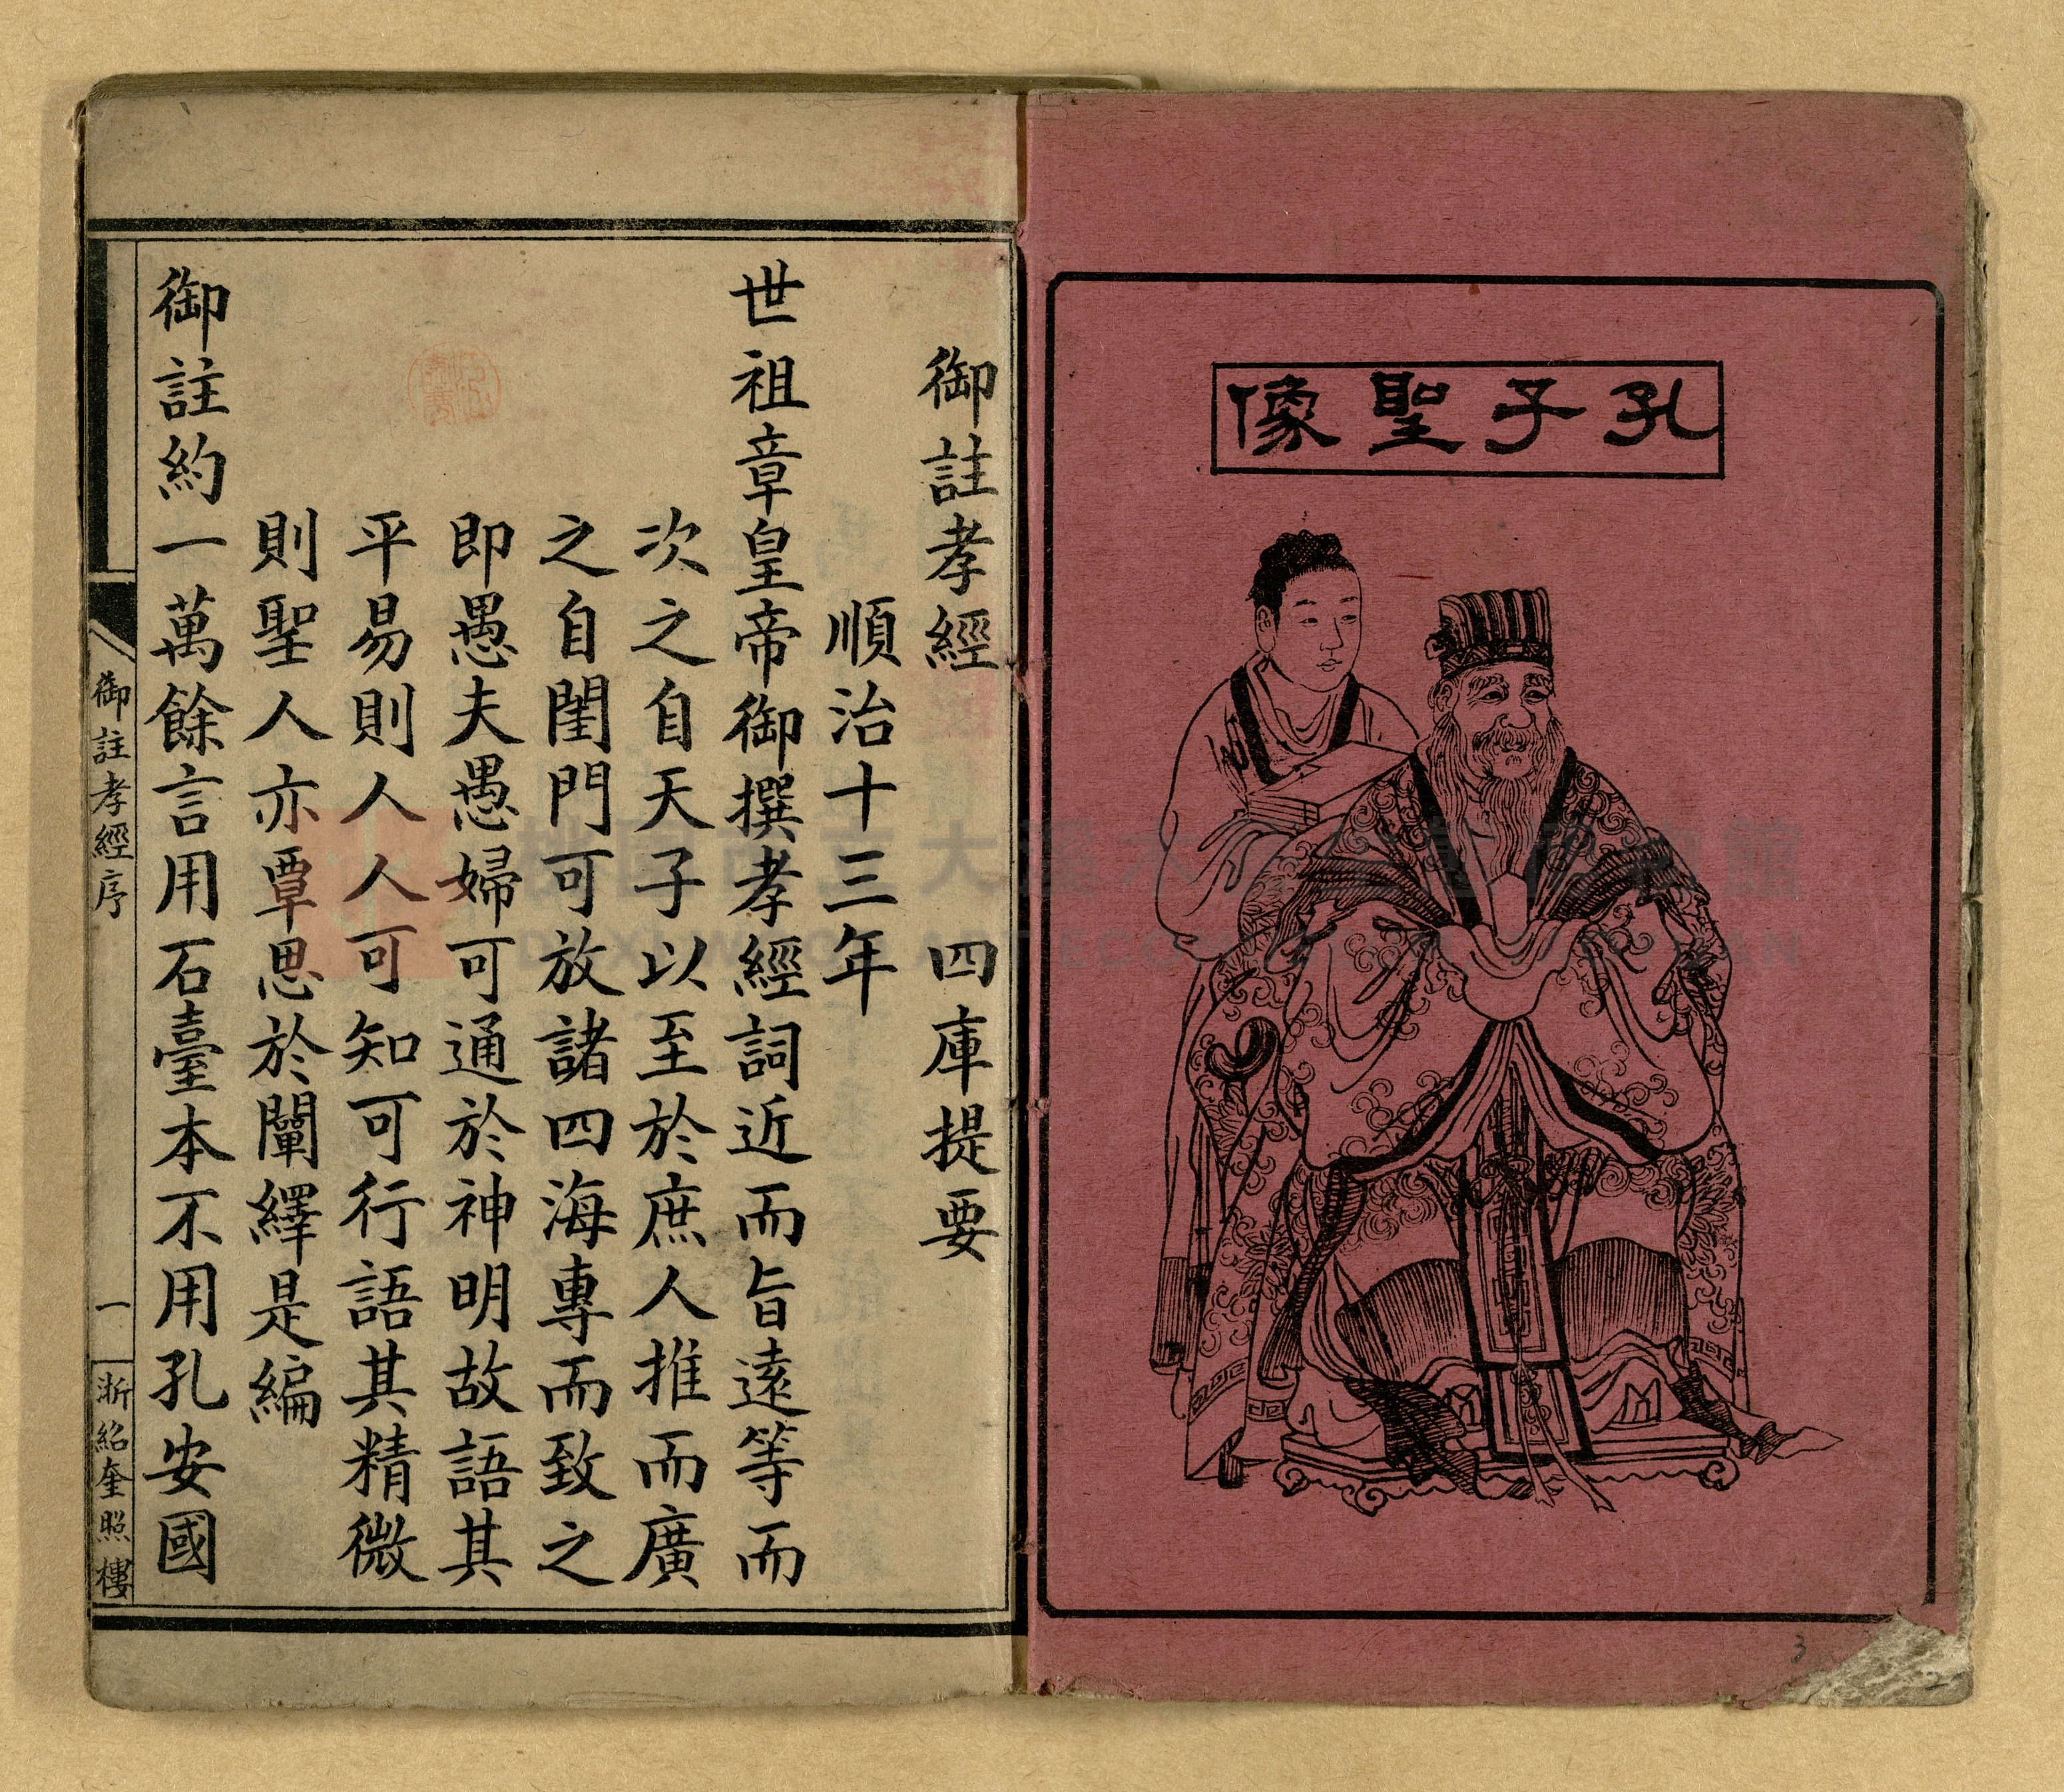 孔子聖像
御註孝經　四庫提要
順治十三年
世祖章皇帝御撰孝經詞近而旨遠等而
次之自天子以至於庶人推而廣
之自閨門可放諸四海專而致之
即愚夫愚婦可通於神明故語其
平易則人人可知可行語其精微
則聖人亦覃思於闡繹是編
御註約一萬餘言用石臺本不用孔安國
御註孝經序
一
浙紹奎照樓
3